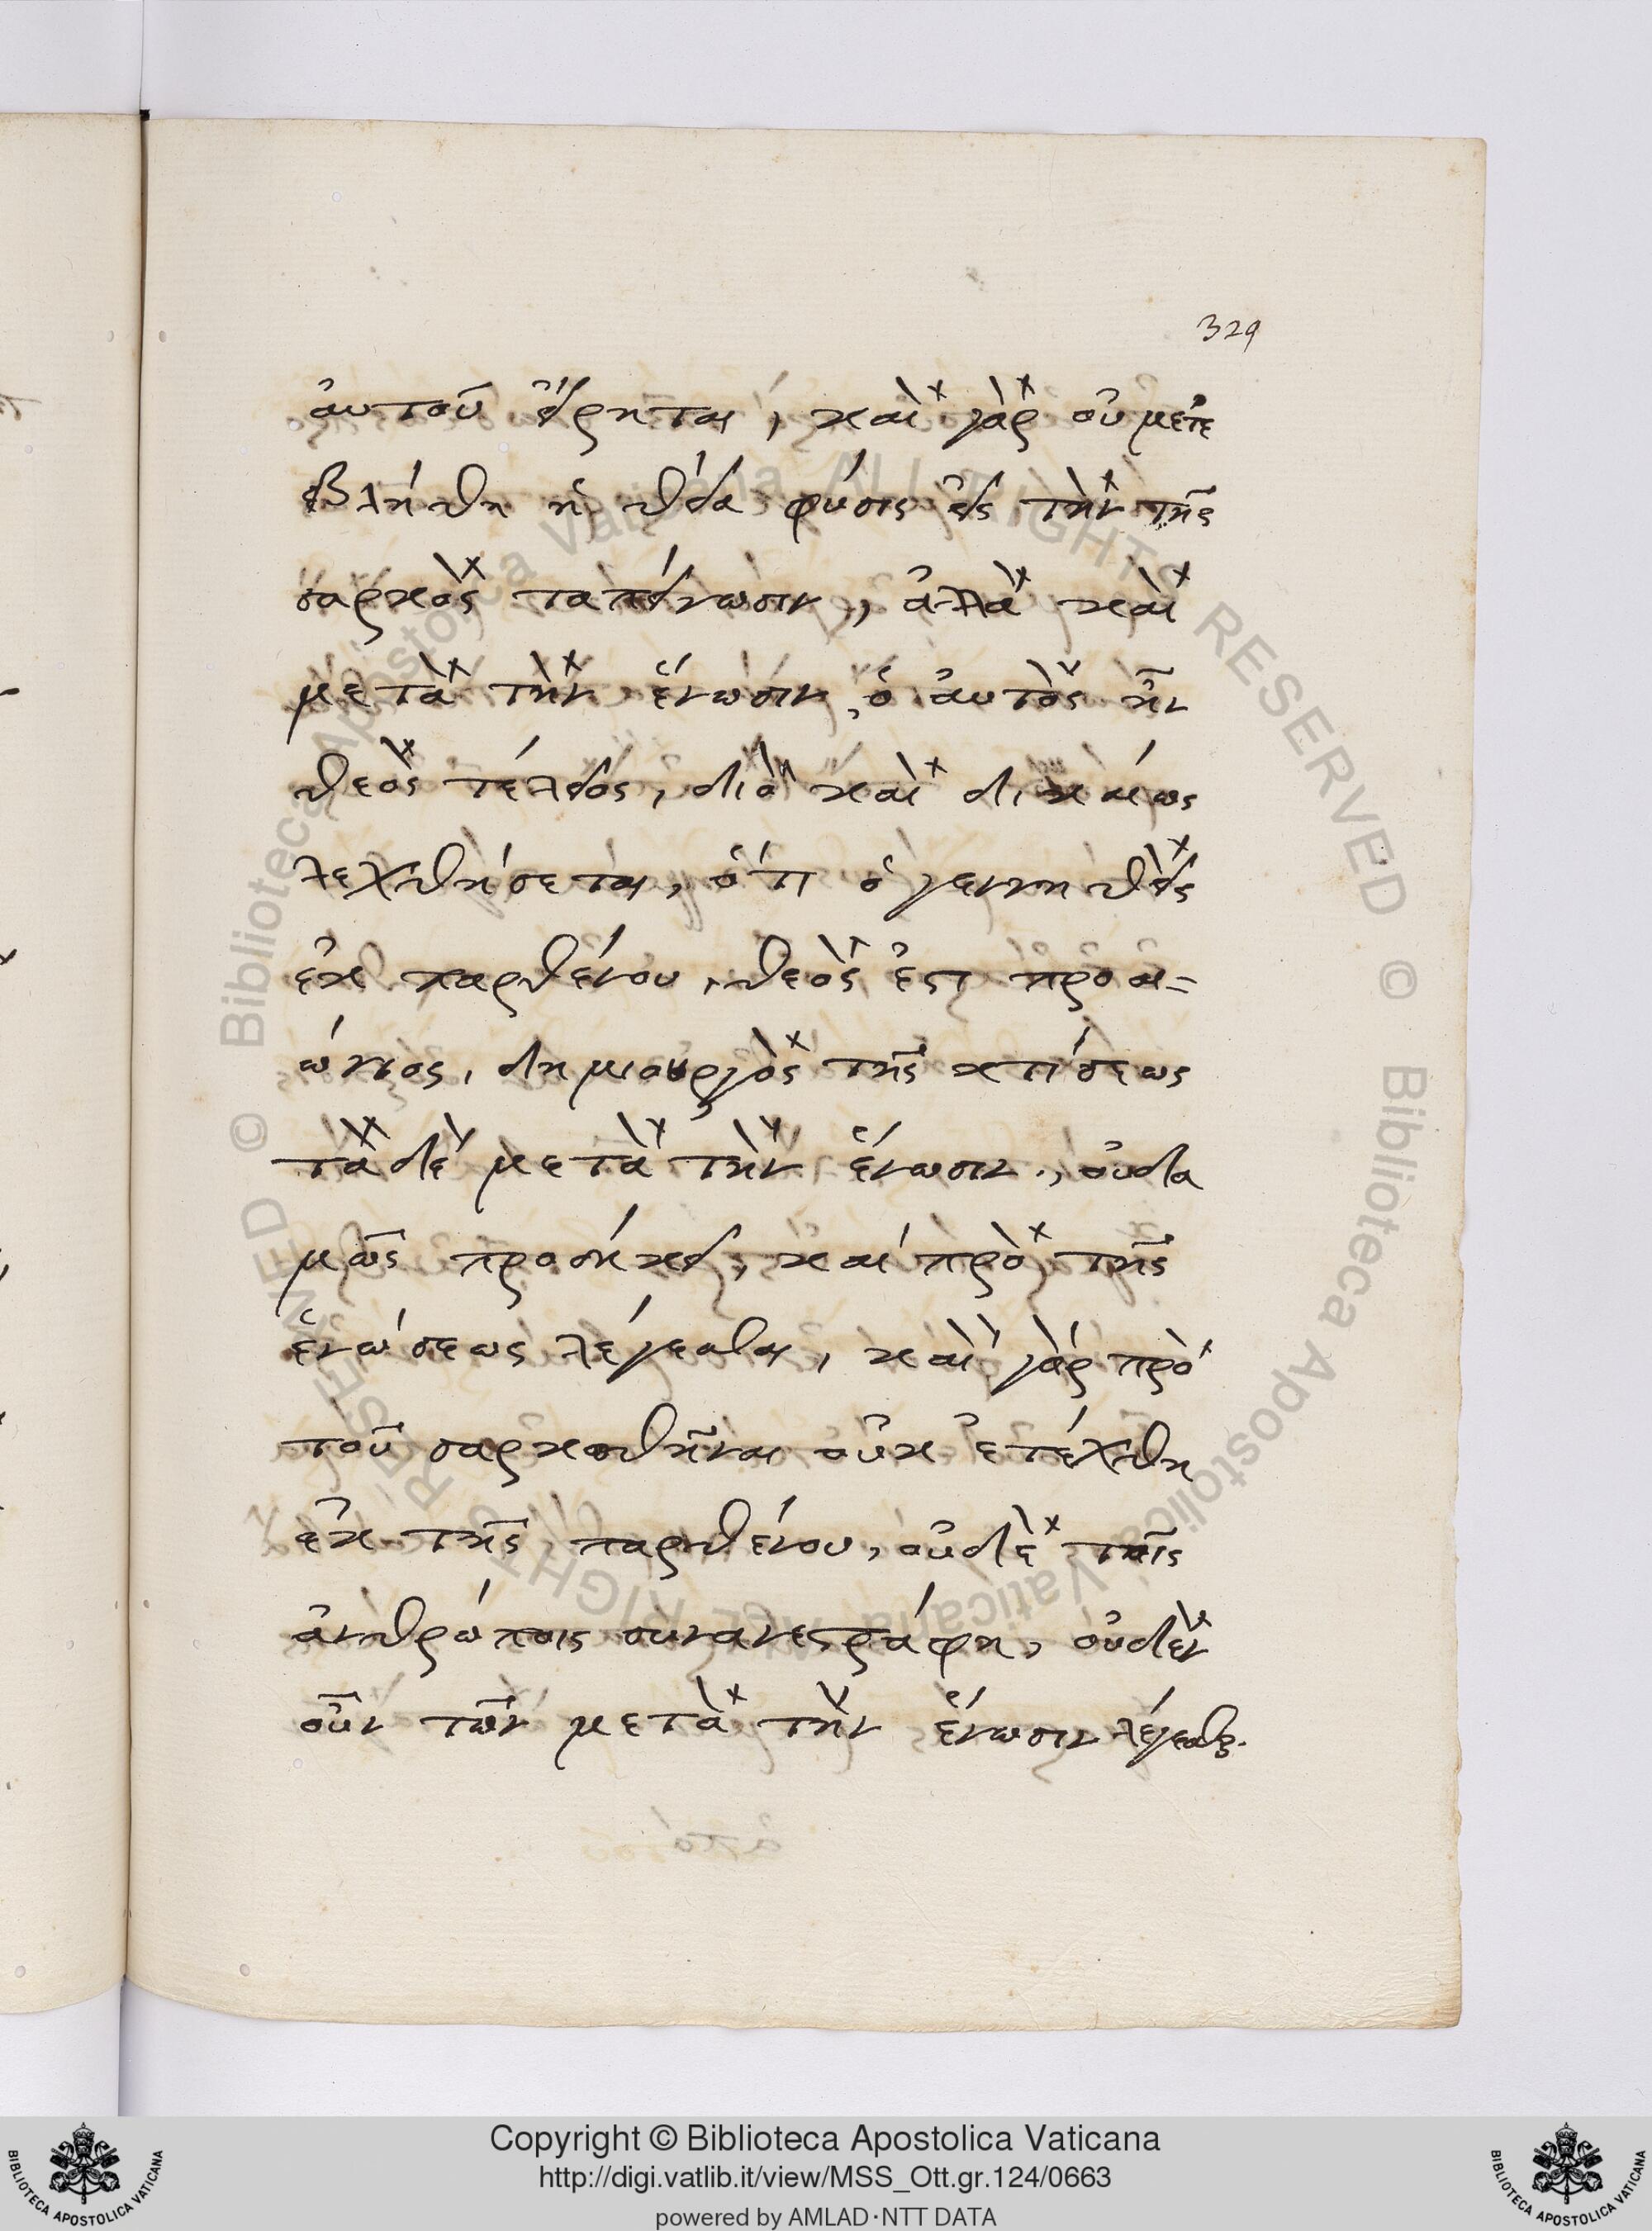 329
αὐτοῦ εἴρηται, καὶ γὰρ οὐ μετε
βλήθη ἡ θεία φύσις εἰς τὴν τῆς
σαρκὸς ταπείνωσιν, ἀλλὰ καὶ
μετὰ τὴν ἕνωσιν, ὁ αὐτὸς ἦν
θεὸς τέλειος, διὸ καὶ δικαίως
λεχθήσεται, ὅτι ὁ γεννηθεὶς
ἐκ παρθένου, θεὸς ἐστι προαι=
ώνιος, δημιουργὸς τῆς κτίσεως
τὰ δὲ μετὰ τὴν ἕνωσιν, οὐδα
μῶς προσήκει, καί πρὸ τῆς
ἑνώσεως λέγεσθαι, καὶ γὰρ πρὸ
τοῦ σαρκωθῆναι οὐκ ἐτέχθη
ἐκ τῆς παρθένου, οὐδὲ τοῖς
ἀνθρώποις συνανεστράφη, οὐδὲν
οὖν τῶν μετὰ τὴν ἕνωσιν λέγεσθαι.
© Biblioteca Apostolica Vaticana ALL RIGHTS RESERVED © Biblioteca Apostolica Vaticana ALL RIGHTS RESERVED
Copyright © Biblioteca Apostolica Vaticana
http://digi.vatlib.it/view/MSS_Ott.gr.124/0663
powered by AMLAD·NTT DATA
BIBLIOTECA APOSTOLICA VATICANA
BIBLIOTECA APOSTOLICA VATICANA